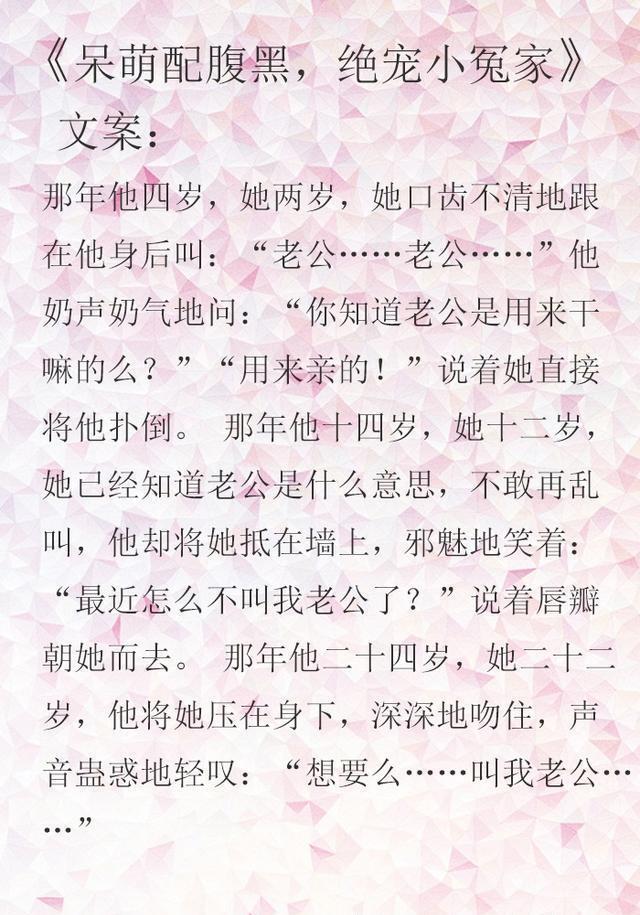 《呆萌配腹黑，绝宠小冤家》
文案：
那年他四岁，她两岁，她口齿不清地跟
在他身后叫：“老公……老公……”他
奶声奶气地问：“你知道老公是用来干
嘛的么？”“用来亲的！”说着她直接
将他扑倒。 那年他十四岁，她十二岁，
她已经知道老公是什么意思，不敢再乱
叫，他却将她抵在墙上，邪魅地笑着：
“最近怎么不叫我老公了？”说着唇瓣
朝她而去。 那年他二十四岁，她二十二
岁，他将她压在身下，深深地吻住，声
音蛊惑地轻叹：“想要么……叫我老公…
…”